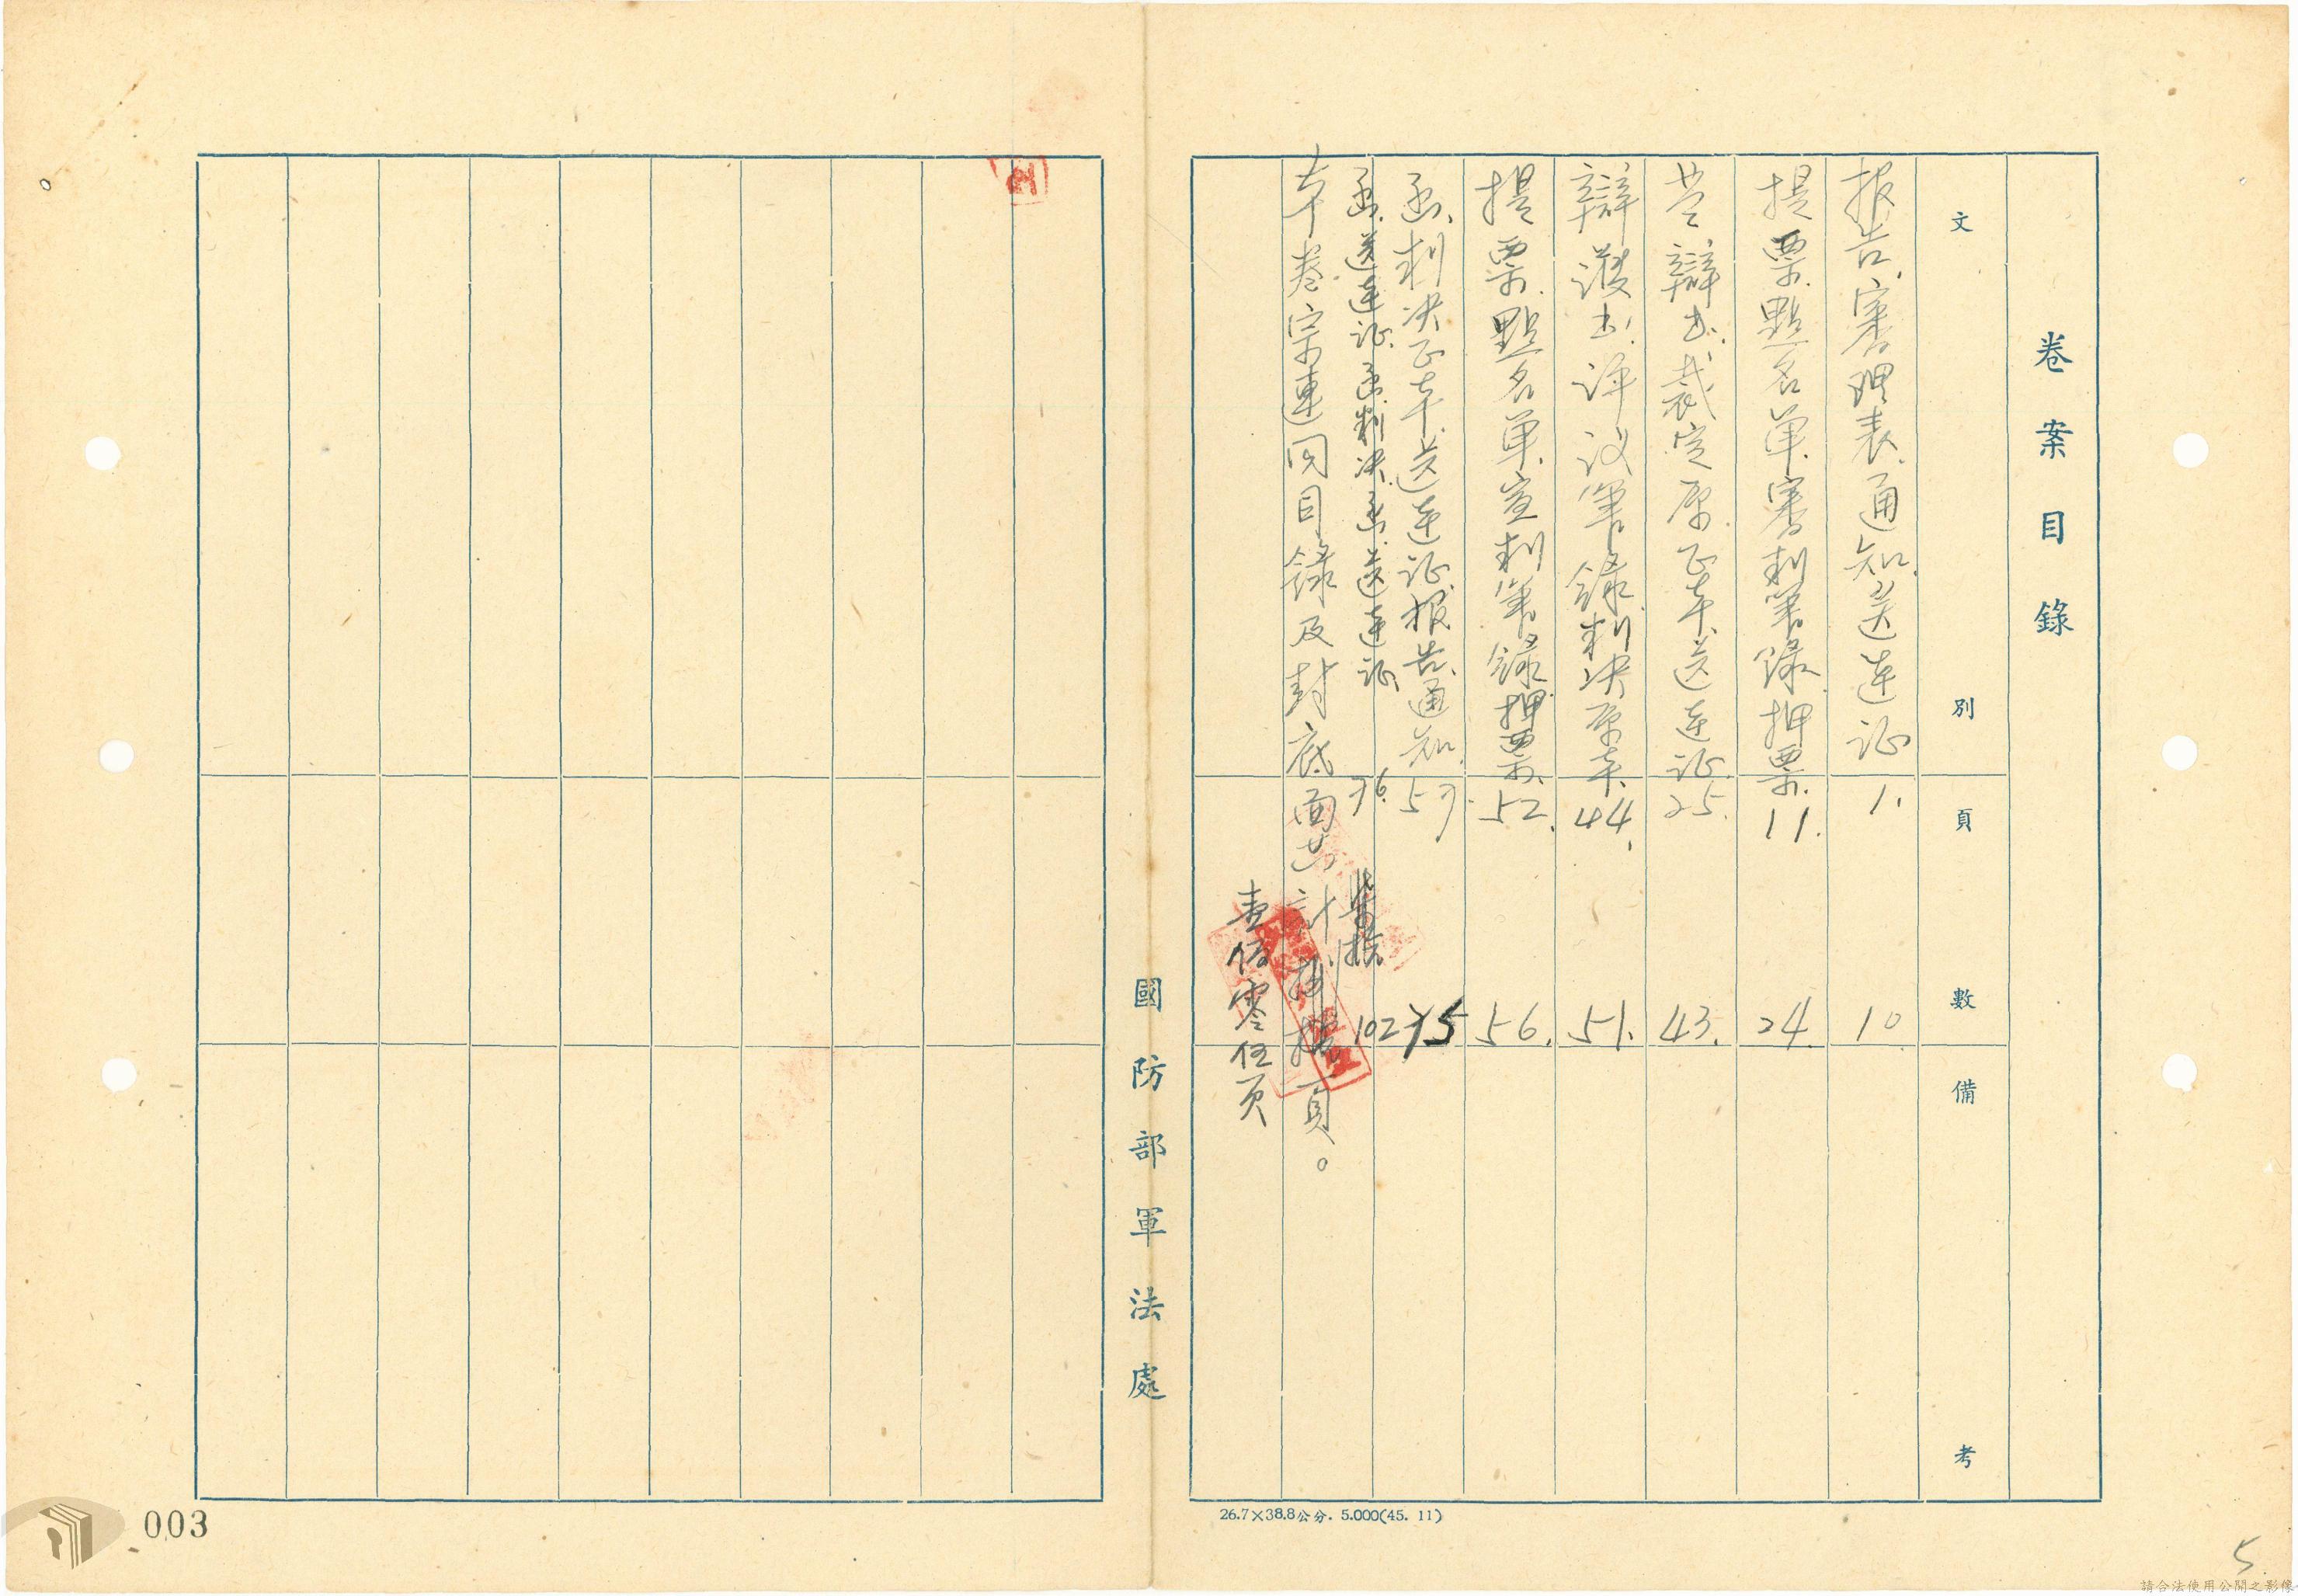 卷案目錄
文別
頁數
備考
报告.審理表.通知.送达证 1. 10.
提票.點名單.審判筆録.押票. 11. 24.
答辯书.裁定原.正本.送达证. 25. 43.
辯護书.评议筆録.判决原本. 44. 51.
提票.點名單.宣判筆錄.押票. 52. 56.
函.判决正本.送达证.报告.通知. 57. 75
函.送達证.函.判决.函.送達证. 76. 102
本卷宗連同目録及封底面共計 頁。
壹佰零伍页
國防部軍法處
26.7×38.8公分. 5.000(45. 11)
003
5
請合法使用公開之影像